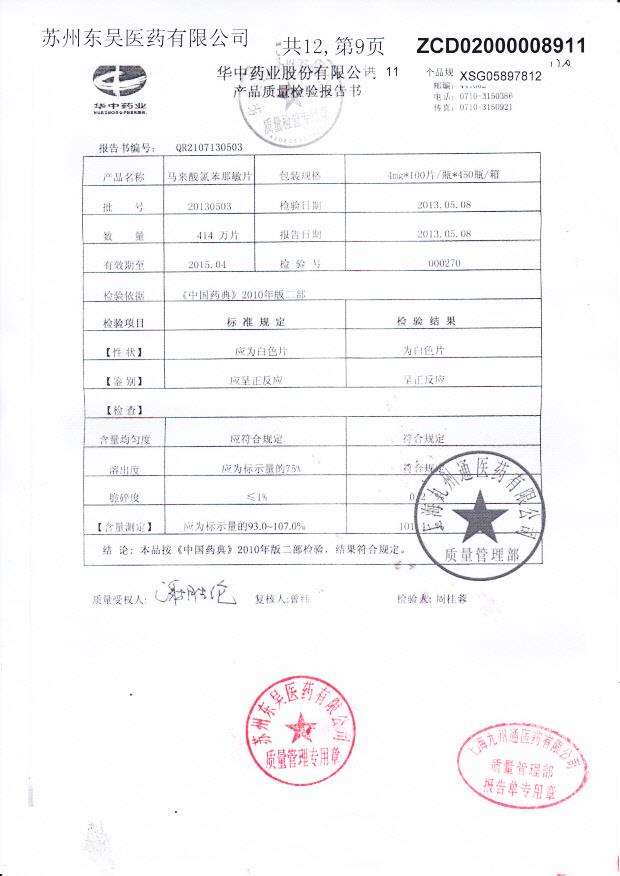 苏州东吴医药有限公司
共12,第9页
ZCD02000008911
华中药业股份有限公司
共 11
个品规
XSG05897812
产品质量检验报告书
邮编:
电话: 0710-3150386
传真: 0710-3150921
华中药业
HUAZHONG PHARMA
质量检验专用章
报告书编号: QR2107130503
产品名称 马来酸氯苯那敏片 包装规格 4mg*100片/瓶*450瓶/箱
批 号 20130503 检验日期 2013.05.08
数 量 414 万片 报告日期 2013.05.08
有效期至 2015.04 检 验 号 000270
检验依据 《中国药典》2010年版二部
检验项目 标 准 规 定 检 验 结 果
【性 状】 应为白色片 为白色片
【鉴 别】 应呈正反应 呈正反应
【检 查】
含量均匀度 应符合规定 符合规定
溶出度 应为标示量的75% 符合规定
脆碎度 ≤1% 0.2
【含量测定】 应为标示量的93.0~107.0% 101
结 论: 本品按《中国药典》2010年版二部检验, 结果符合规定。
上海九州通医药有限公司
质量管理部
质量受权人:
复核人:曾纬
检验人: 周桂蓉
苏州东吴医药有限公司
质量管理专用章
上海九州通医药有限公司
质量管理部
报告单专用章